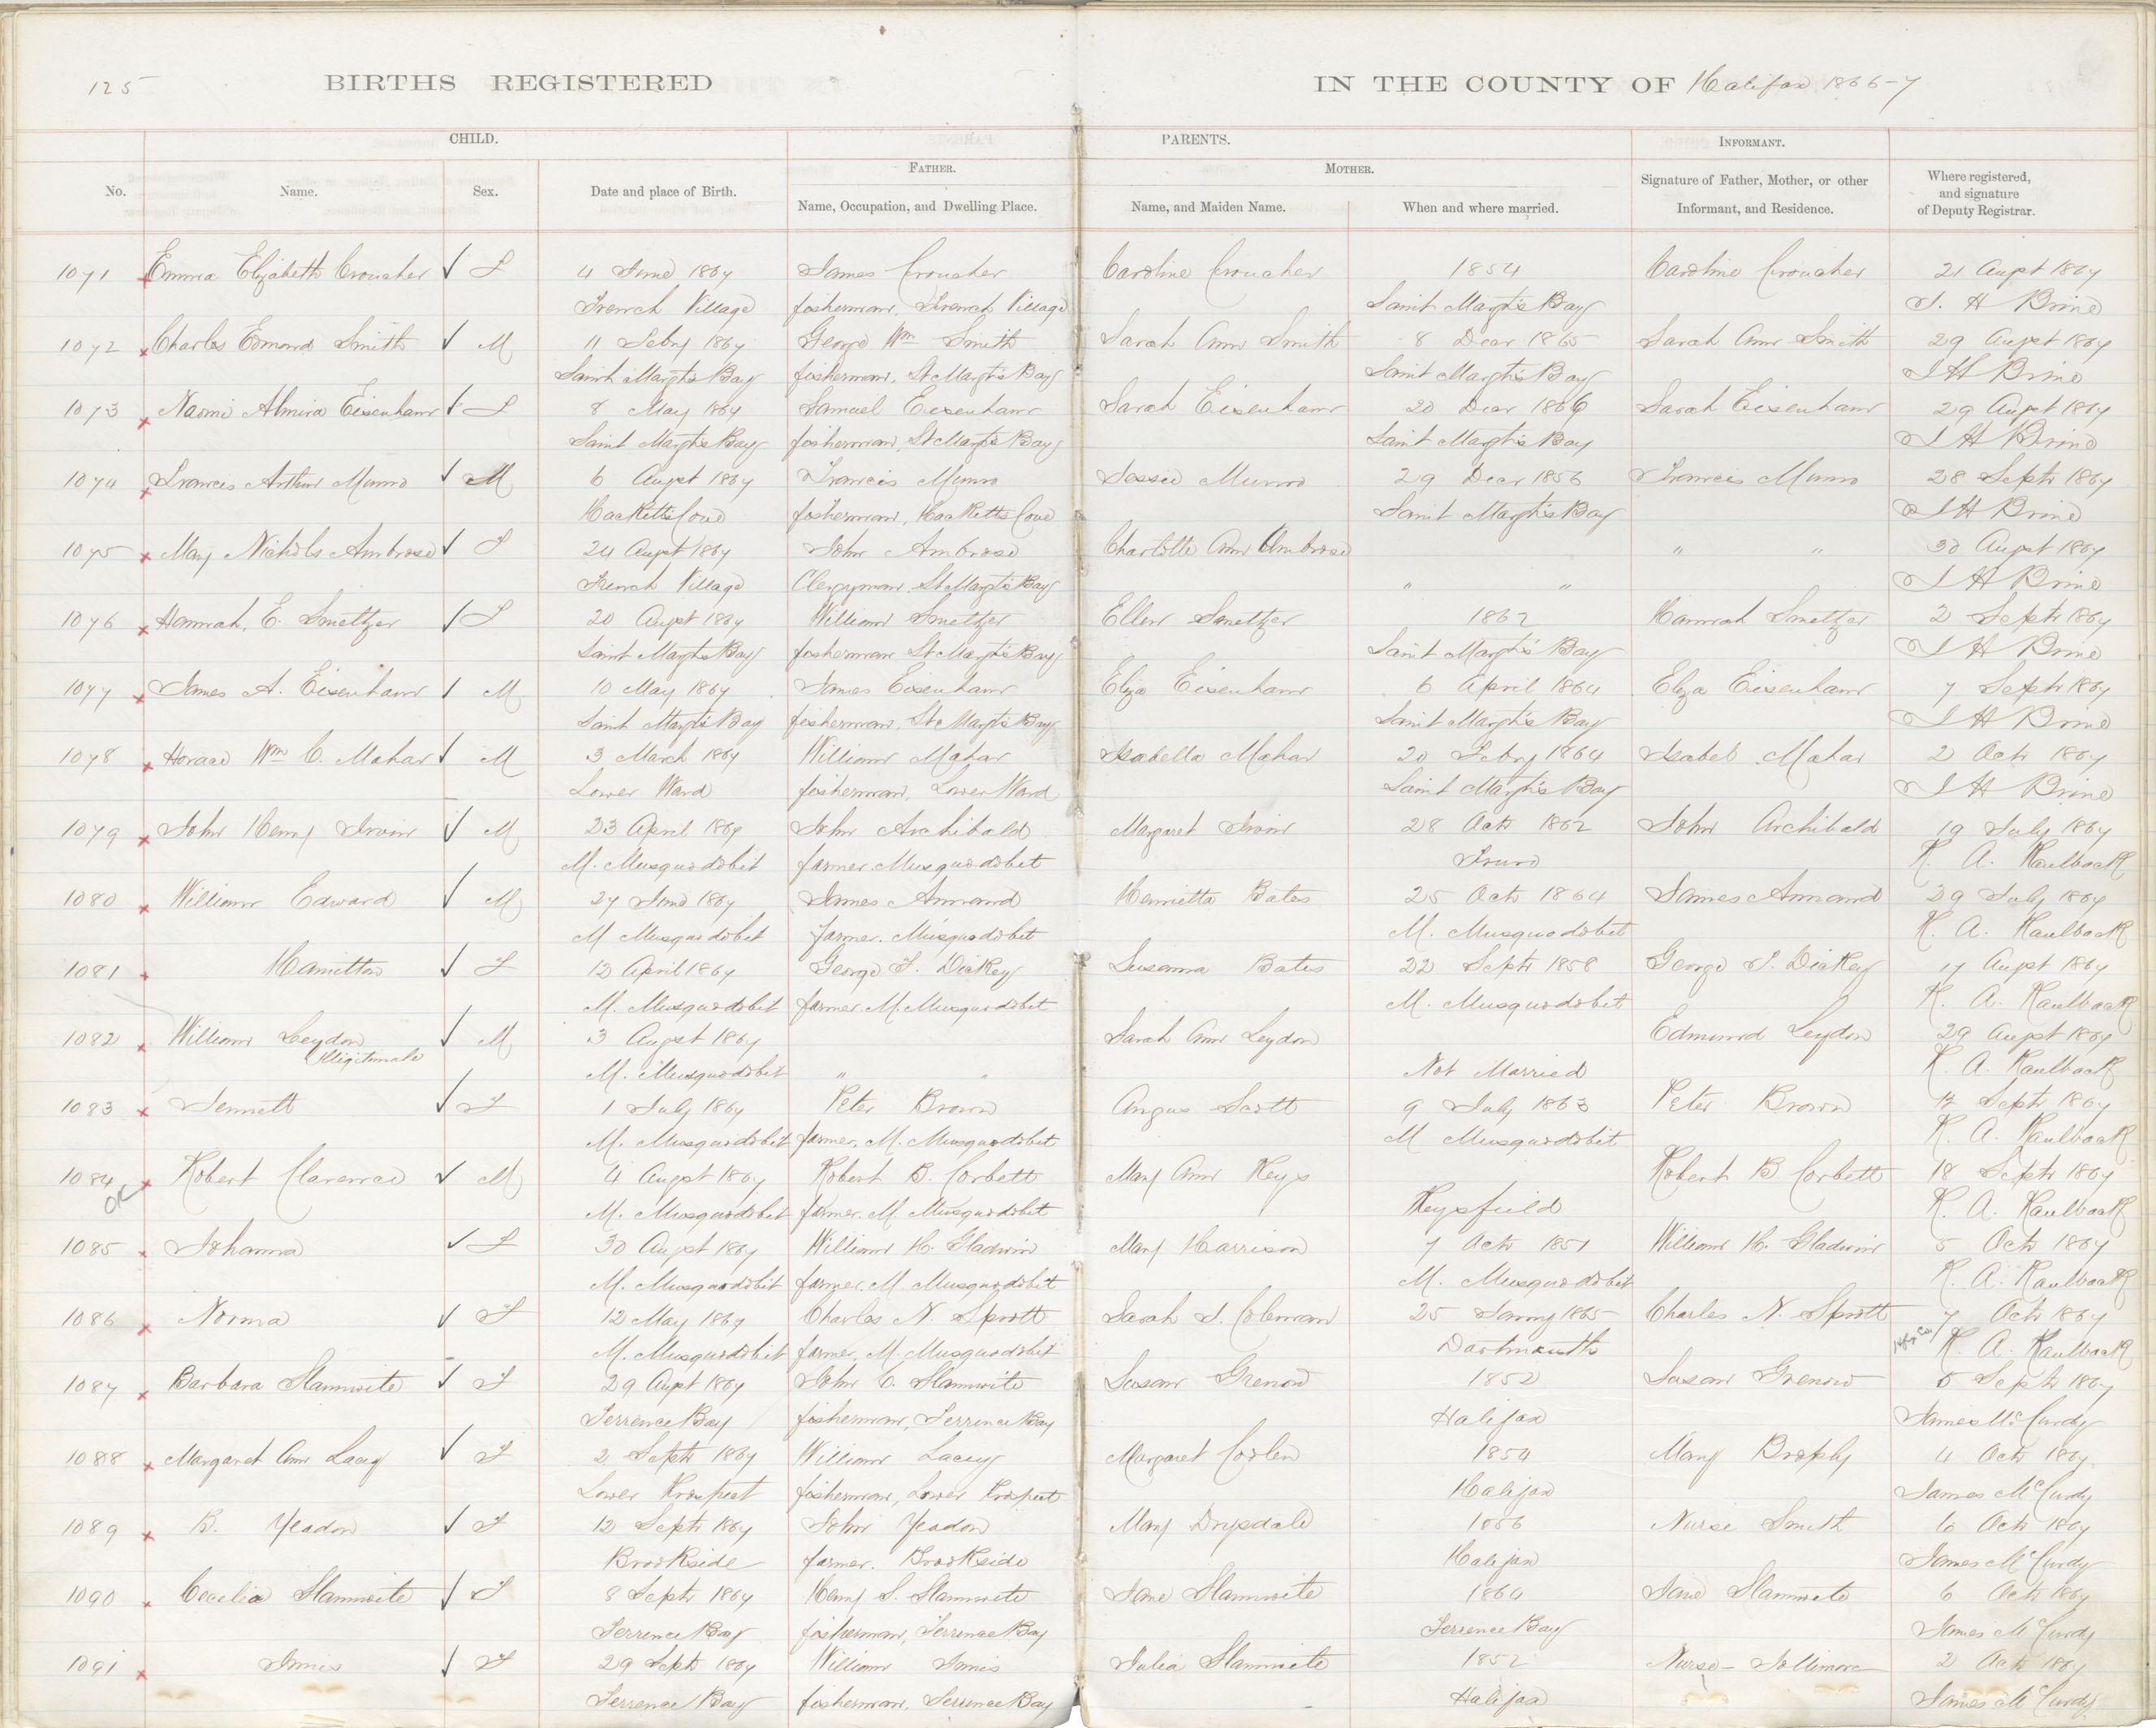 125 BIRTHS REGISTERED IN THE COUNTY OF Halifax 1866-7
CHILD. PARENTS. INFORMANT.
FATHER. MOTHER.
No. Name. Sex. Date and place of Birth. Name, Occupation, and Dwelling Place. Name, and Maiden Name. When and where married. Signature of Father, Mother, or other Informant, and Residence. Where registered, and signature of Deputy Registrar.
1071 Emma Elizabeth Croucher F 4 June 1867 James Croucher Caroline Croucher 1854 Caroline Croucher 21 Augst 1867
French Village fisherman, French Village Saint Margts Bay J. H Brine
1072 Charles Edmond Smith M 11 Feby 1867 George Wm Smith Sarah Ann Smith 8 Decr 1865 Sarah Ann Smith 29 Augst 1867
Saint Margts Bay fisherman, St Margts Bay Saint Margts Bay J H Brine
1073 Naomi Almira Eisenhaur F 8 May 1867 Samuel Eisenhaur Sarah Eisenhaur 20 Decr 1866 Sarah Eisenhaur 29 Augst 1867
Saint Margts Bay fisherman, St Margts Bay Saint Margts Bay J H Brine
1074 Francis Arthur Munro M 6 Augst 1867 Francis Munro Jessie Munro 29 Decr 1856 Francis Munro 28 Septr 1867
Hacketts Cove fisherman, Hacketts Cove Saint Margts Bay J H Brine
1075 Mary Nichols Ambrose F 24 Augst 1867 John Ambrose Charlotte Ann Ambrose " " 30 Augst 1867
French Village Clergyman St Margts Bay " " J H Brine
1076 Hannah E. Smeltzer F 20 Augst 1867 William Smeltzer Ellen Smeltzer 1862 Hannah Smeltzer 2 Septr 1867
Saint Margts Bay fisherman St Margts Bay Saint Margts Bay J H Brine
1077 James A. Eisenhaur M 10 May 1867 James Eisenhaur Eliza Eisenhaur 6 April 1864 Eliza Eisenhaur 7 Septr 1867
Saint Margts Bay fisherman, St Margts Bay Saint Margts Bay J H Brine
1078 Horace Wm C. Mahar M 3 March 1867 William Mahar Isabella Mahar 20 Feby 1864 Isabel Mahar 2 Octr 1867
Lower Ward fisherman, Lower Ward Saint Margts Bay J H Brine
1079 John Henry Irvin M 23 April 1867 John Archibald Margaret Irvin 28 Octr 1862 John Archibald 19 July 1867
M. Musquodobit farmer. Musquodobet Truro K. A. Kaulback
1080 William Edward M 27 June 1867 James Annand Henrietta Bates 25 Octr 1864 James Annand 29 July 1867
M Musquodobit farmer. Musquodobit M. Musquodobit K. A. Kaulback
1081 Hamilton F 12 April 1867 George F. Dickey Susanna Bates 22 Septr 1858 George F. Dickey 17 Augst 1867
M. Musquodobit farmer M. Musquodobit M. Musquodobit K. A. Kaulback
1082 William Leydon M 3 Augst 1867 Sarah Ann Leydon Edmund Leydon 29 Augst 1867
Illigitimate
M. Musquodobit " " Not Married K. A. Kaulback
1083 Jennett F 1 July 1867 Peter Brown Angus Scott 9 July 1863 Peter Brown 12 Septr 1867
M. Musquodobit farmer, M. Musquodobit M Musquodobit K. A. Kaulback
1084 Robert Clarence M 4 Augst 1867 Robert B. Corbett Mary Ann Keys Robert B Corbett 18 Septr 1867
OK M. Musquodobit farmer. M Musquodobit Keysfield K. A. Kaulback
1085 Johanna F 30 Augst 1867 William H. Gladwin Mary Harrison 7 Octr 1851 William H. Gladwin 5 Octr 1867
M. Musquodobit farmer. M. Musquodobit M. Musquodobit K. A. Kaulback
1086 Norma F 12 May 1867 Charles N. Sprott Sarah J. Coleman 25 Janny 1865 Charles N. Sprott 7 Octr 1867
M. Musquodobit farmer, M. Musquodobit Dartmouth Hfx Co. K. A. Kaulback
1087 Barbara Slaunwite F 29 Augst 1867 John C. Slaunwite Susan Grenow 1852 Susan Grenow 5 Septr 1867
Terrence Bay fisherman, Terrence Bay Halifax James McCurdy
1088 Margaret Ann Lacey F 2 Septr 1867 William Lacey Margaret Coolen 1854 Mary Brophy 4 Octr 1867
Lower Prospect fisherman, Lower Prospect Halifax James McCurdy
1089 B. Yeadon F 12 Septr 1867 John Yeadon Mary Drysdale 1856 Nurse Smith 6 Octr 1867
Brookside farmer. Brookside Halifax James McCurdy
1090 Cecelia Slaunwite F 8 Septr 1867 Henry S. Slaunwite Jane Slaunwite 1864 Jane Slaunwite 6 Octr 1867
Terrence Bay fisherman, Terrence Bay Terrence Bay James McCurdy
1091 Innis F 29 Septr 1867 William Innis Julia Slaunwite 1852 Nurse - Jollimore 2 Octr 1867
Terrence Bay fisherman, Terrence Bay Halifax James McCurdy